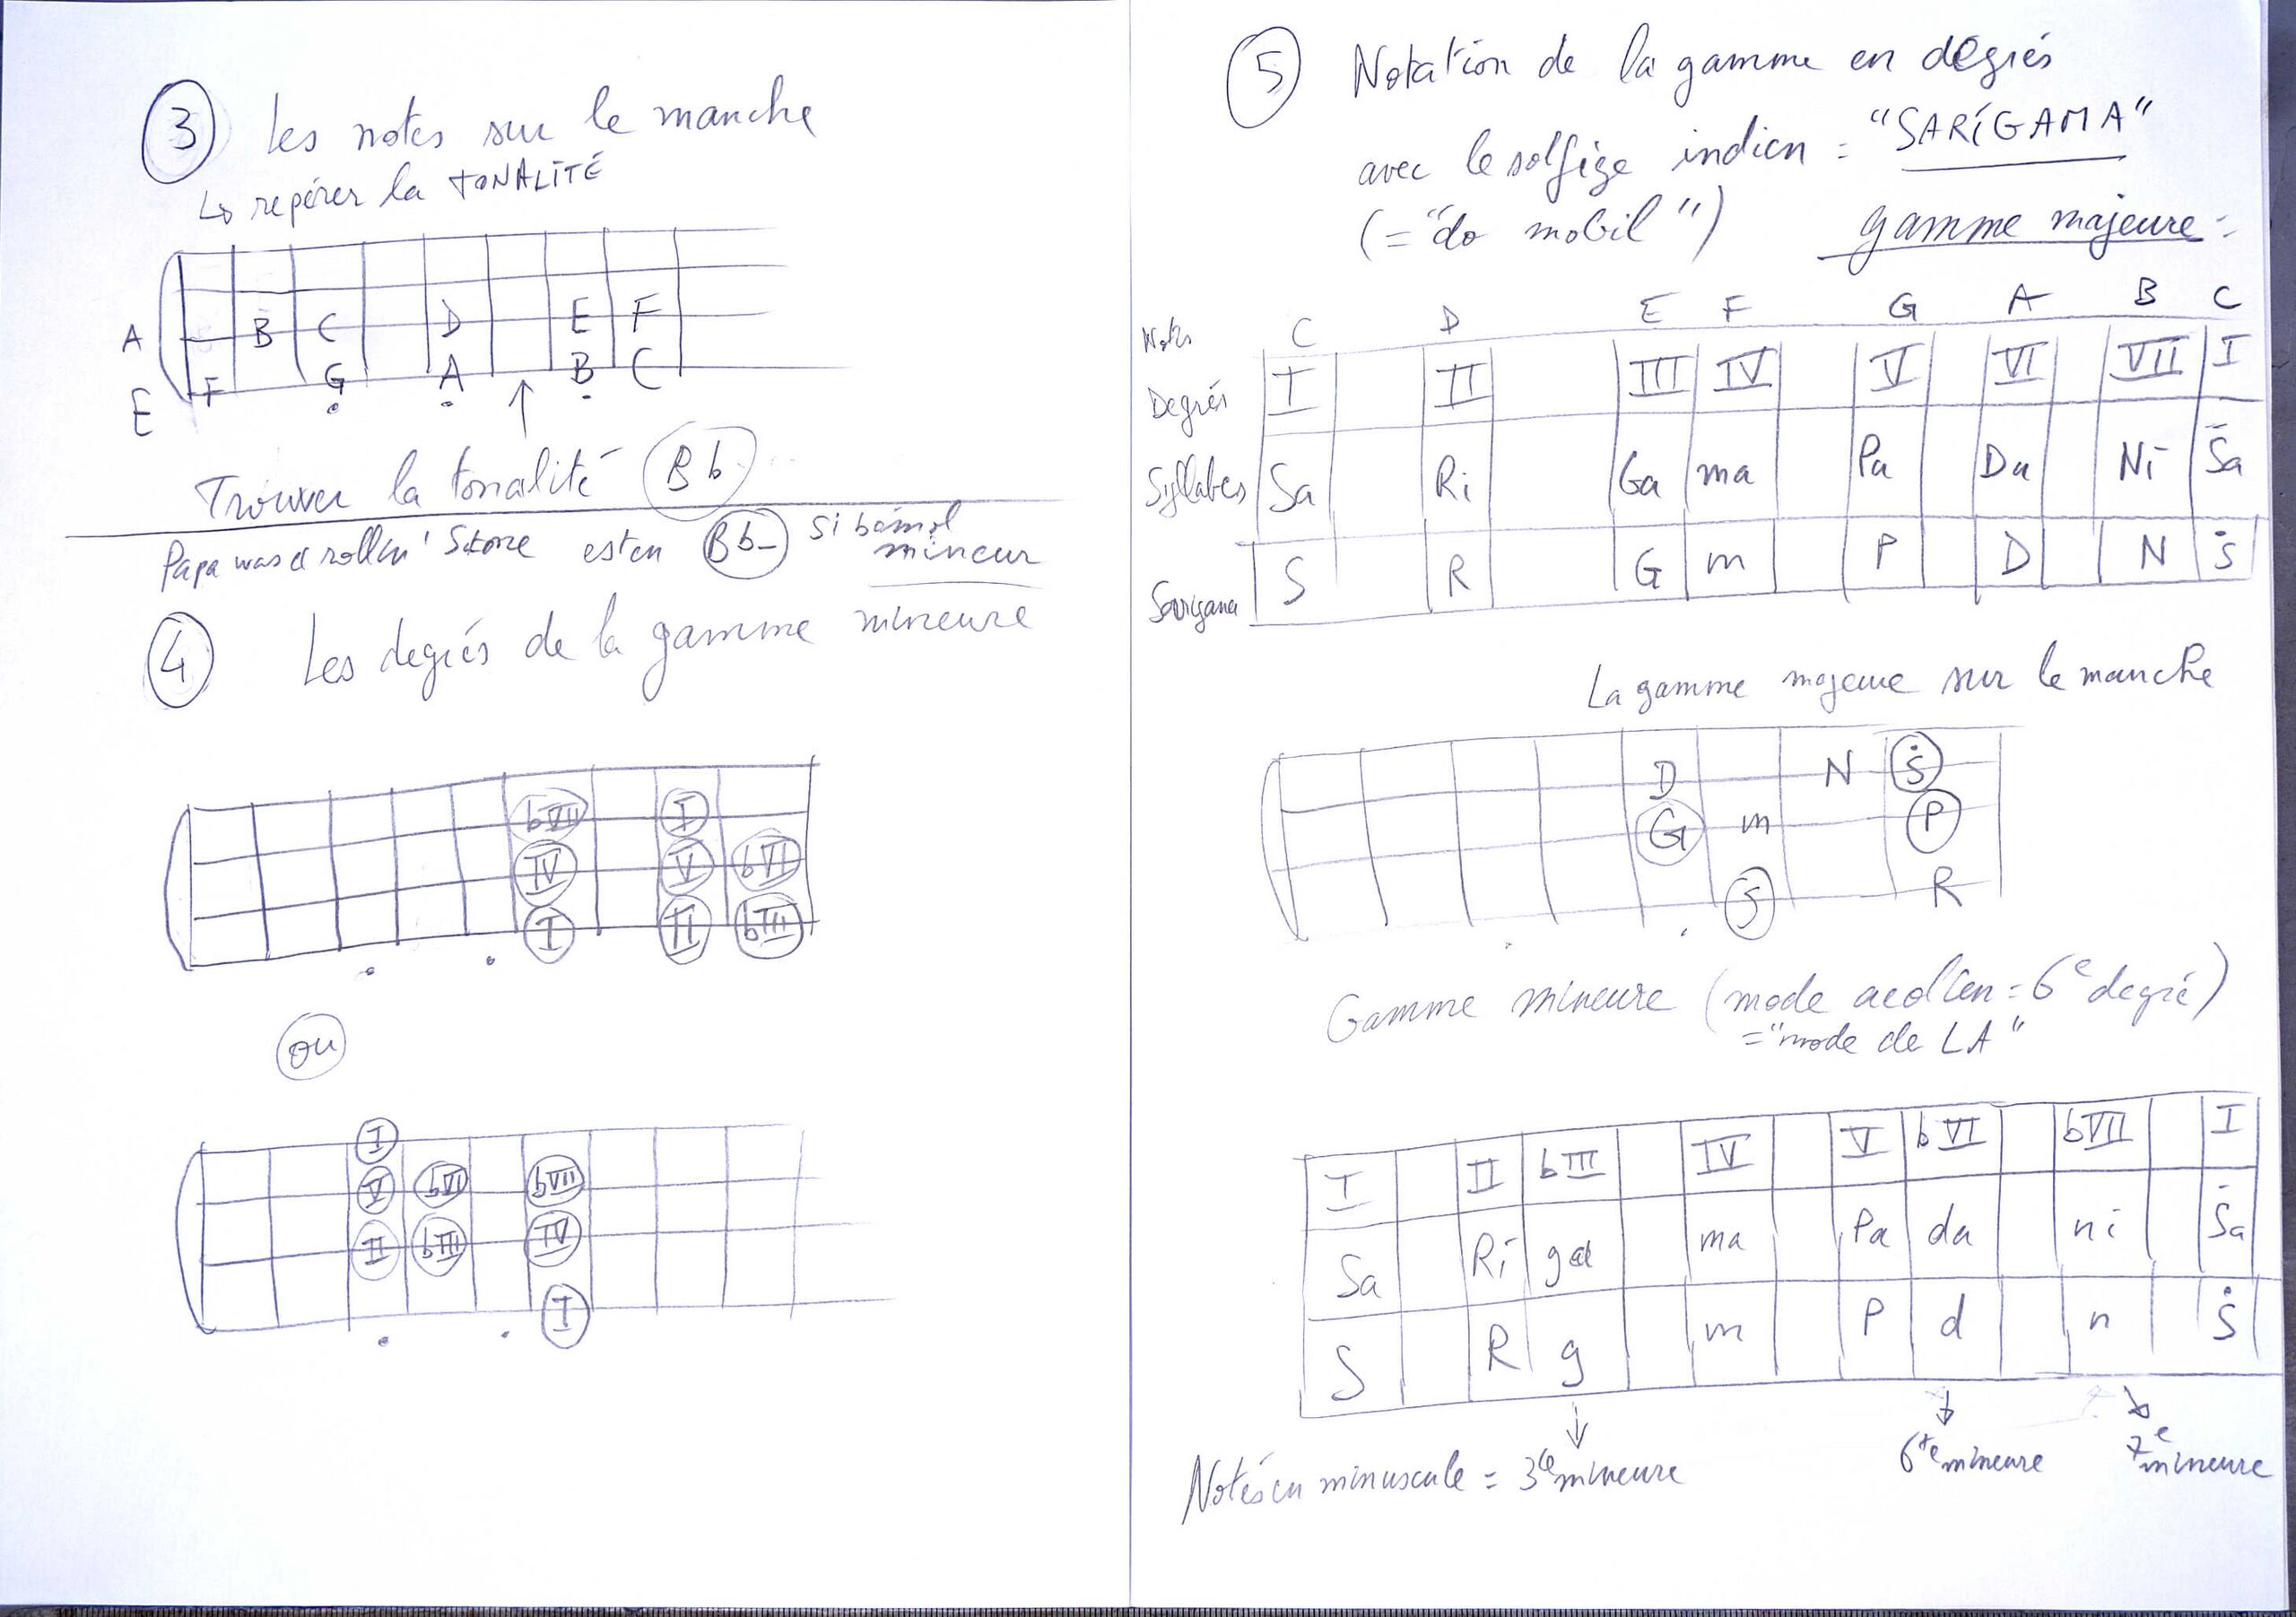 3 Les notes sur le manche
↳ repérer la TONALITÉ
A B C D E F
E F G A B C
↑
Trouver la tonalité Bb
Papa was a rollin' Stone est en Bb- Si bémol
mineur
4 Les degrés de la gamme mineure
bVII I
IV V bVI
I II bIII
ou
I
V bVI bVII
II bIII IV
I
5 Notation de la gamme en degrés
avec le solfège indien = "SARIGAMA"
(= "do mobil") gamme majeure =
Notes C D E F G A B C
Degrés I II III IV V VI VII I
Syllabes Sa Ri Ga ma Pa Da Ni Sa
Sarigama S R G m P D N Ṡ
La gamme majeure sur le manche
D N Ṡ
G m P
S R
Gamme mineure (mode aeolien = 6e degré)
= "mode de LA"
I II bIII IV V bVI bVII I
Sa Ri ga ma Pa da ni Sa
S R g m P d n Ṡ
Notés en minuscule = 3ce mineure 6te mineure 7e mineure